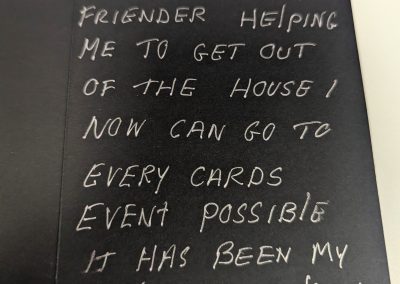 FRIENDER HElPING
ME TO GET OUT
OF THE HOUSE I
NOW CAN GO TO
EVERY CARDS
EVENT POSSIBlE
IT HAS BEEN MY